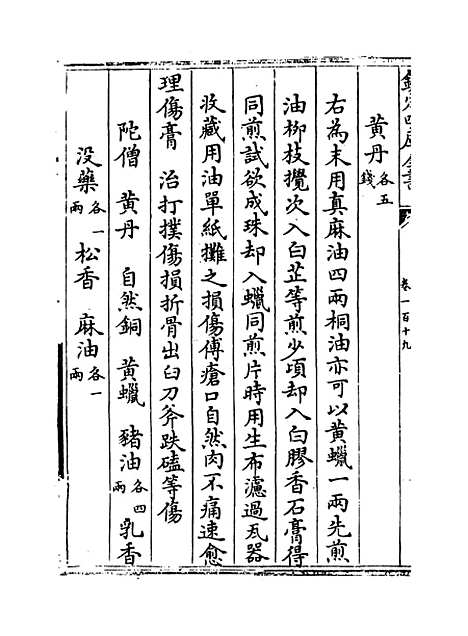 欽定四庫全書
卷一百十九
黃丹各五錢
右為末用真麻油四兩桐油亦可以黃蠟一兩先煎
油柳枝攪次入白芷等煎少頃却入白膠香石膏得
同煎試欲成珠却入蠟同煎片時用生布濾過瓦器
收藏用油單紙攤之損傷傅瘡口自然肉不痛速愈
理傷膏 治打撲傷損折骨出臼刀斧跌磕等傷
陀僧 黃丹 自然銅 黃蠟 豬油各四兩 乳香
没藥各一兩 松香 麻油各一兩